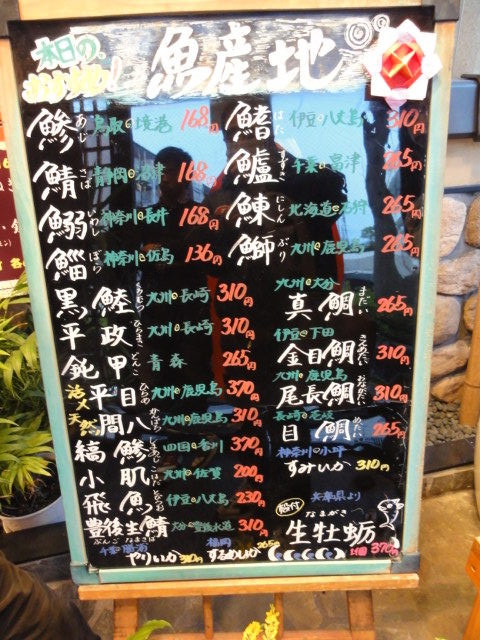 本日の
魚産地
鯵 あじ 鳥取・境港 168円
鯖 さば 静岡・沼津 168円
鰯 いわし 神奈川・長井 168円
鯔 ぼら 神奈川・佐島 136円
黒睦 くろむつ 九州・長崎 310円
平政 ひらまさ 九州・長崎 310円
鈍甲 どんこ 青森 265円
活〆 平目 ひらめ 九州・鹿児島 370円
天然 間八 かんぱち 九州・鹿児島 310円
縞鯵 しまあじ 四国・香川 370円
小肌 こはだ 九州・佐賀 200円
飛魚 とびうお 伊豆・八丈島 230円
豊後主鯖 ぶんごなまさば 大分・豊後水道 310円
千葉・勝浦 やりいか 310円
福岡 するめいか 265円
鰭 はた 伊豆・八丈島 310円
鱸 すずき 千葉・富津 265円
鰊 にしん 北海道・石狩 265円
鰤 ぶり 九州・鹿児島 265円
九州・大分
真鯛 まだい 265円
伊豆・下田
金目鯛 きんめだい 310円
九州・鹿児島
尾長鯛 おながだい 310円
長崎・壱岐
目鯛 めだい 265円
神奈川・小坪
すみいか 310円
兵庫県より
殻付 生牡蛎 なまがき 1個 370円